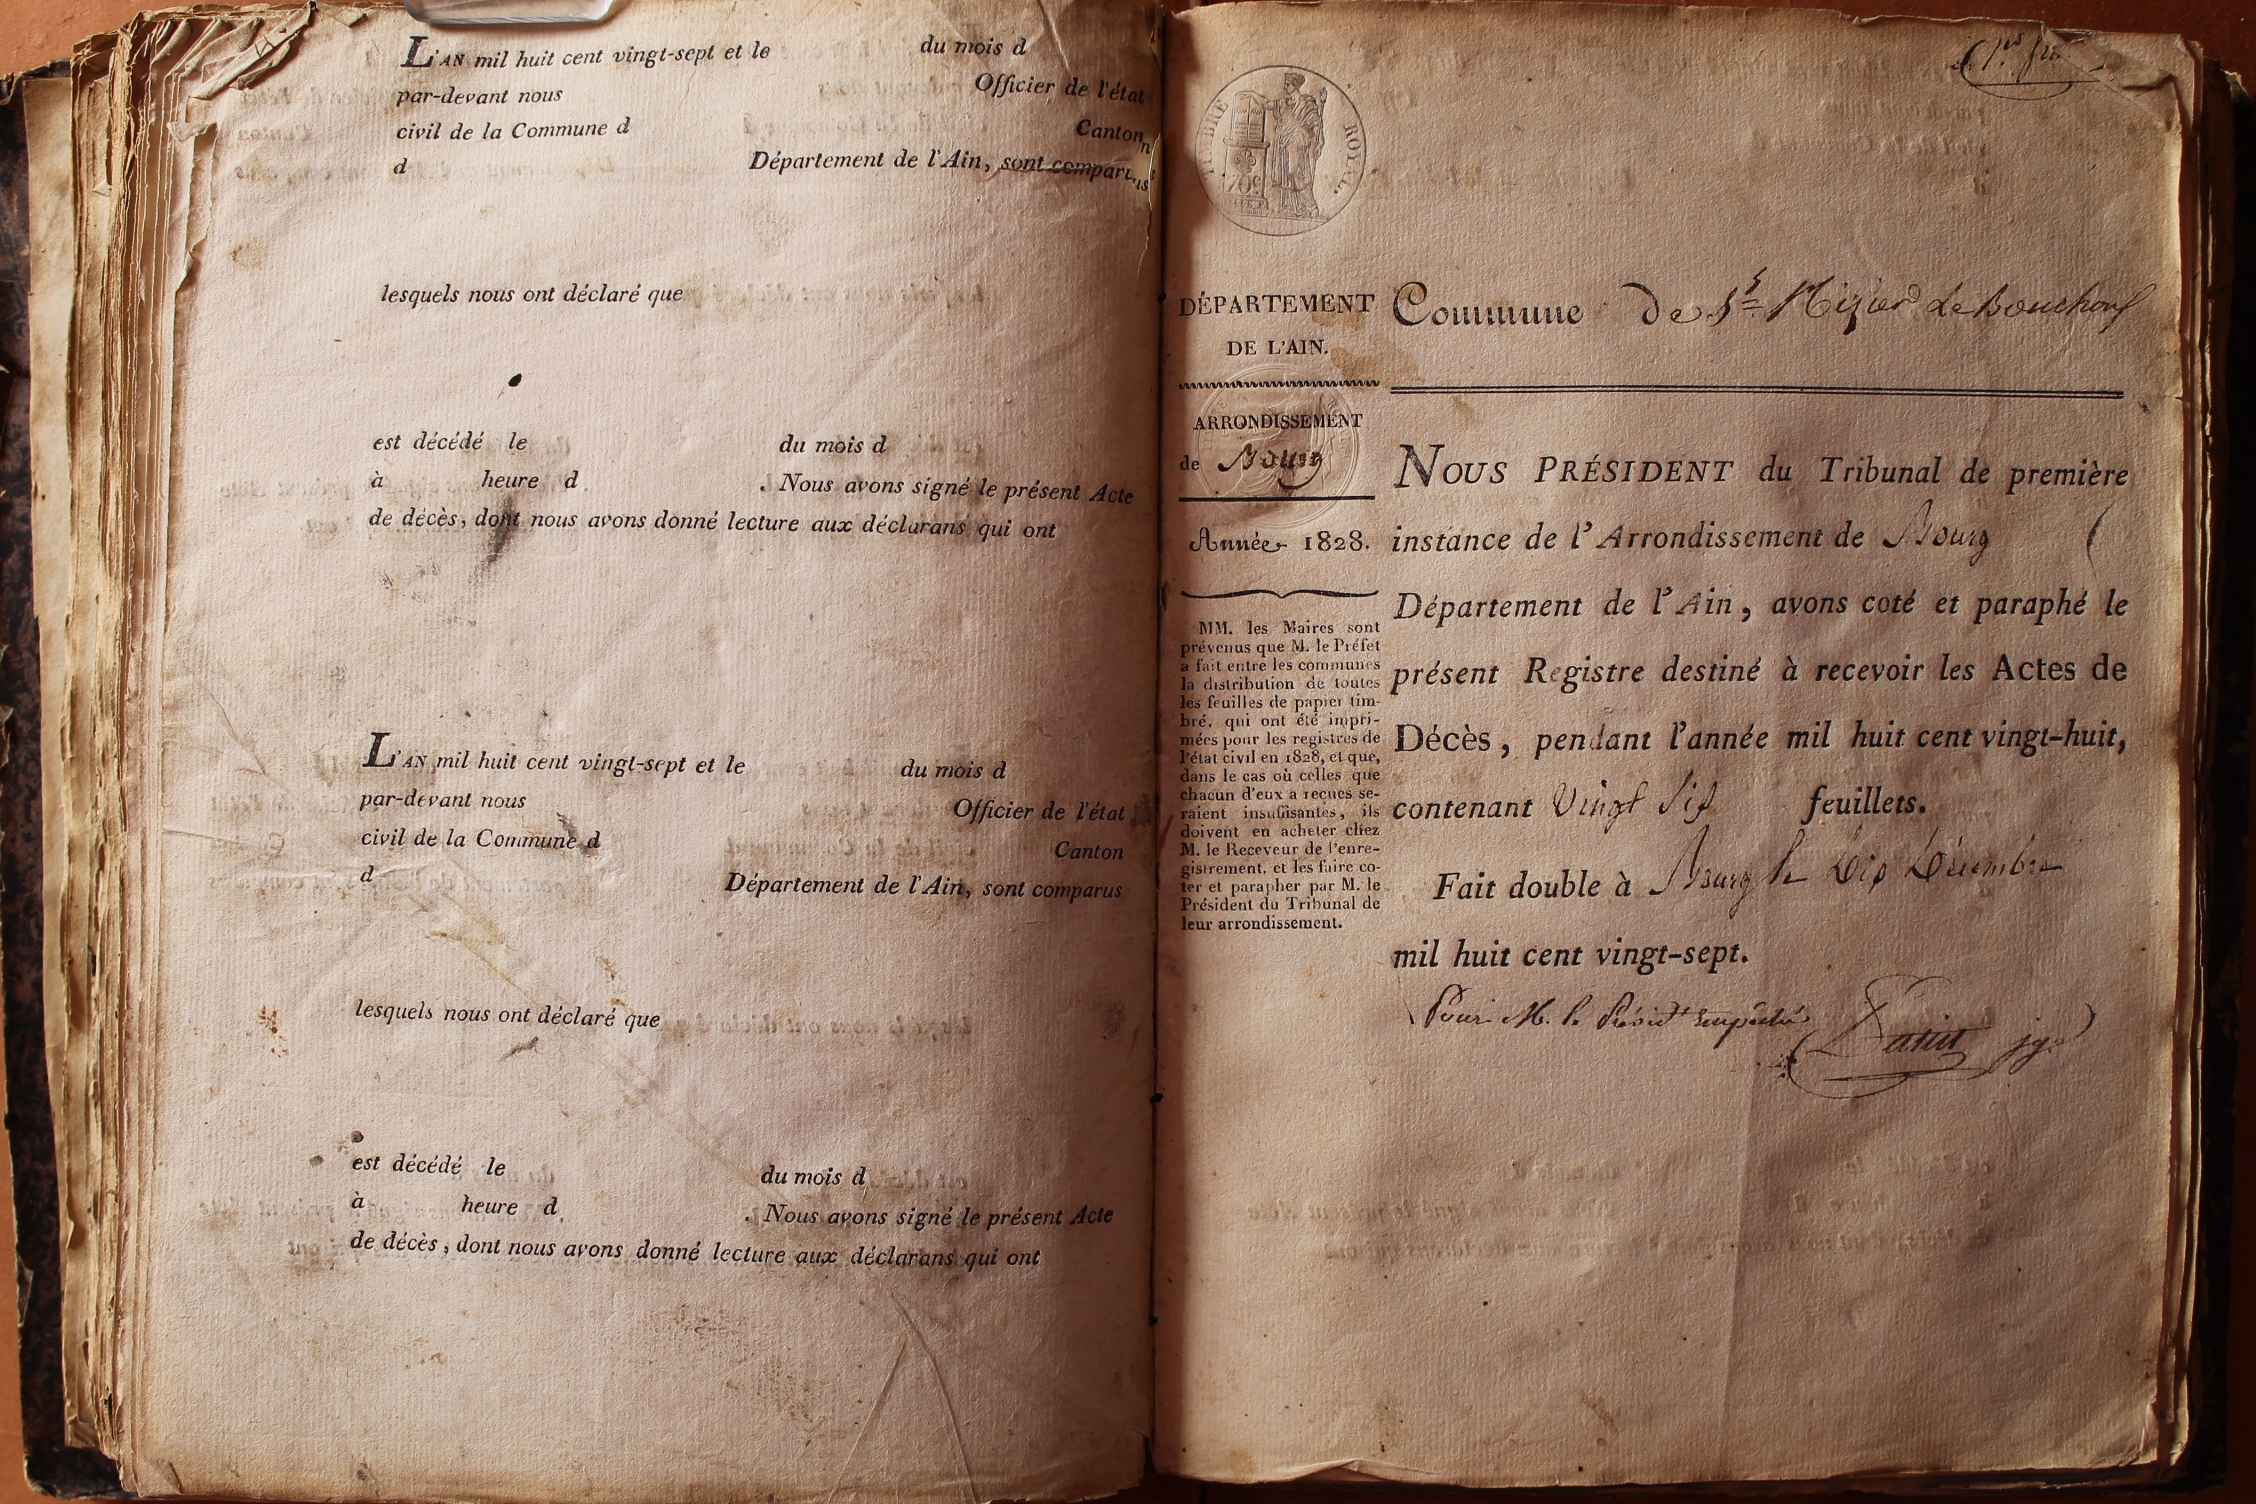 L'AN mil huit cent vingt-sept et le du mois d
par-devant nous Officier de l'état
civil de la Commune d Canton
d Département de l'Ain, sont comparus
lesquels nous ont déclaré que
est décédé le du mois d
à heure d . Nous avons signé le présent Acte
de décès, dont nous avons donné lecture aux déclarans qui ont
L'AN mil huit cent vingt-sept et le du mois d
par-devant nous Officier de l'état
civil de la Commune d Canton
d Département de l'Ain, sont comparus
lesquels nous ont déclaré que
est décédé le du mois d
à heure d . Nous avons signé le présent Acte
de décès, dont nous avons donné lecture aux déclarans qui ont
TIMBRE ROYAL.
70 c.
DÉPARTEMENT
DE L'AIN.
ARRONDISSEMENT
de Bourg
Année 1828.
MM. les Maires sont
prévenus que M. le Préfet
a fait entre les communes
la distribution de toutes
les feuilles de papier tim-
bré, qui ont été impri-
mées pour les registres de
l'état civil en 1828, et que,
dans le cas où celles que
chacun d'eux a reçues se-
raient insuffisantes, ils
doivent en acheter chez
M. le Receveur de l'enre-
gistrement, et les faire co-
ter et parapher par M. le
Président du Tribunal de
leur arrondissement.
Commune de St Nizier Le Bouchoux
NOUS PRÉSIDENT du Tribunal de première
instance de l'Arrondissement de Bourg
Département de l'Ain, avons coté et paraphé le
présent Registre destiné à recevoir les Actes de
Décès, pendant l'année mil huit cent vingt-huit,
contenant Vingt Six feuillets.
Fait double à Bourg le Dix Décembre
mil huit cent vingt-sept.
Pour M. le Présidt empêché
jge